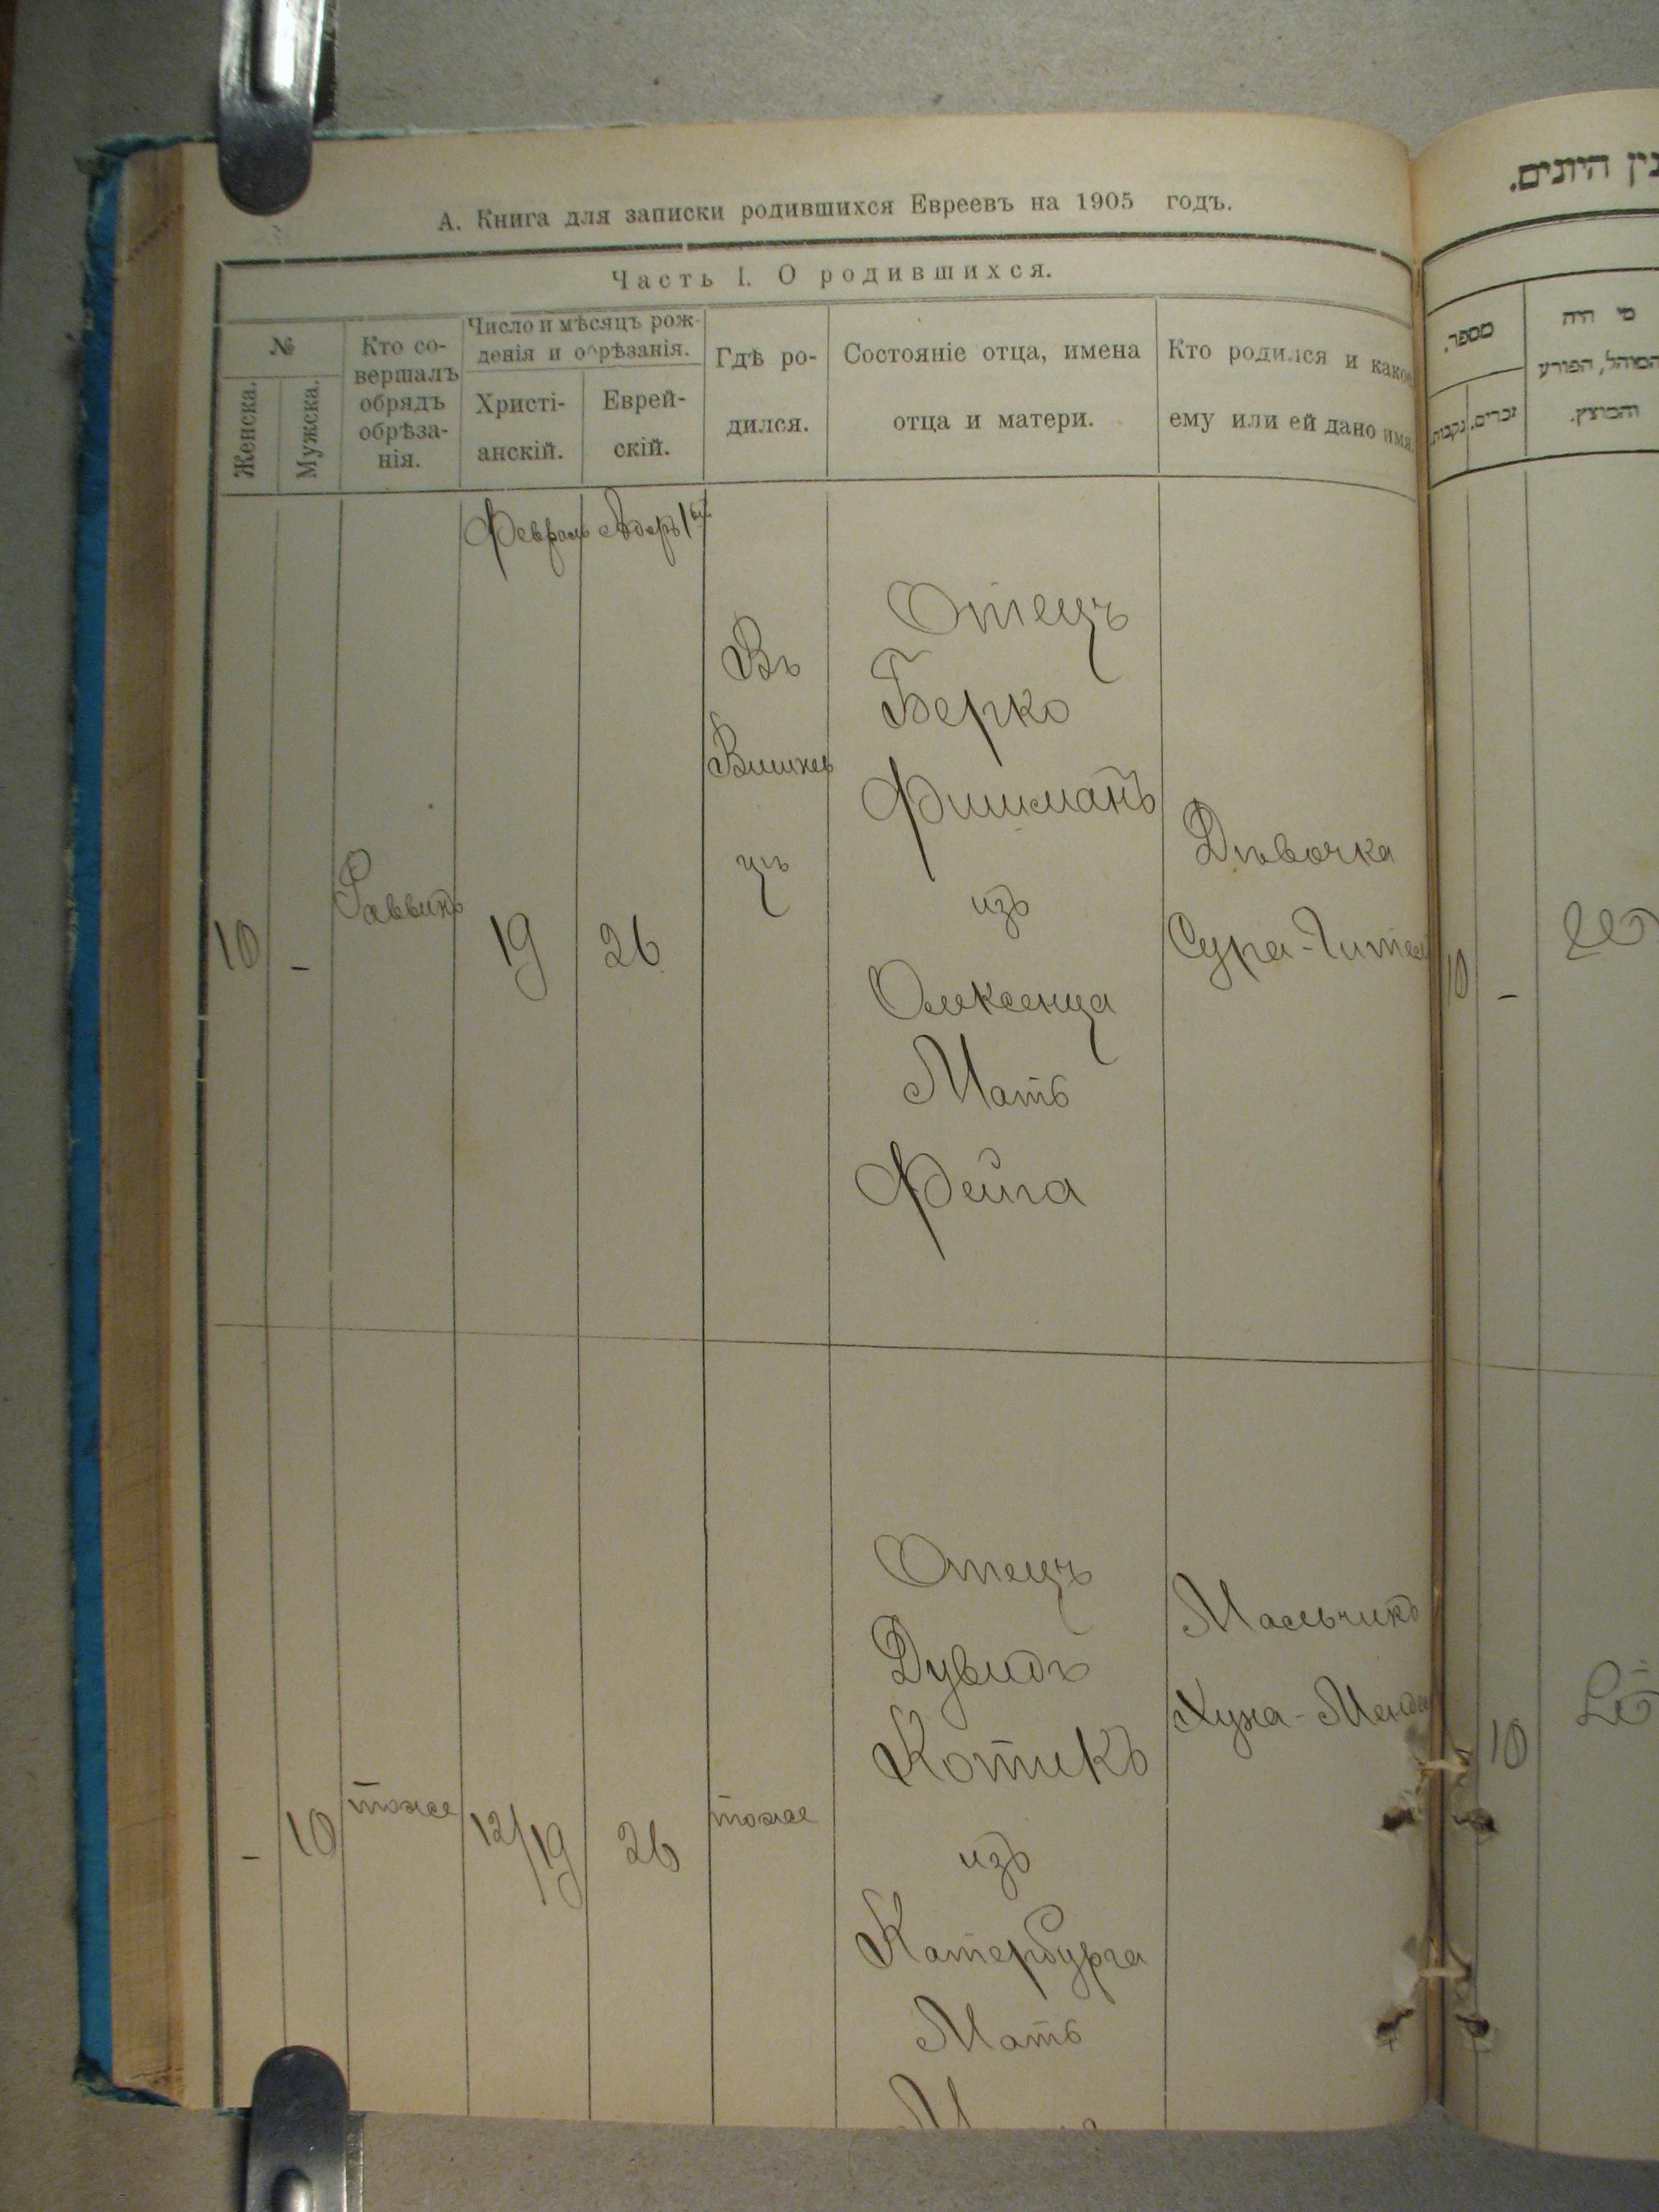 А. Книга для записки родившихся Евреевъ на 1905 годъ.
Часть I. О родившихся.
№
Женска.
Мужска.
Кто со-
вершалъ
обрядъ
обрѣза-
нія.
Число и мѣсяцъ рож-
денія и обрѣзанія.
Христі-
анскій.
Еврей-
скій.
Гдѣ ро-
дился.
Состояніе отца, имена
отца и матери.
Кто родился и какое
ему или ей дано имя
Февраль Адаръ 1ый
10 - Раввинъ 19 26
Въ
Вишнев
цѣ
Отецъ
Берко
Фишманъ
изъ
Олексенца
Мать
Фейга
Дѣвочка
Сура-Гител
- 10 тоже 12/19 26 тоже
Отецъ
Дувидъ
Котикъ
изъ
Катербурга
Мать
Мальчикъ
Хуна-Менде
היתים.
מספר.
נקבות.
זכרים.
מי היה
המוהל, הפורע
והמוצץ.
10 -
10